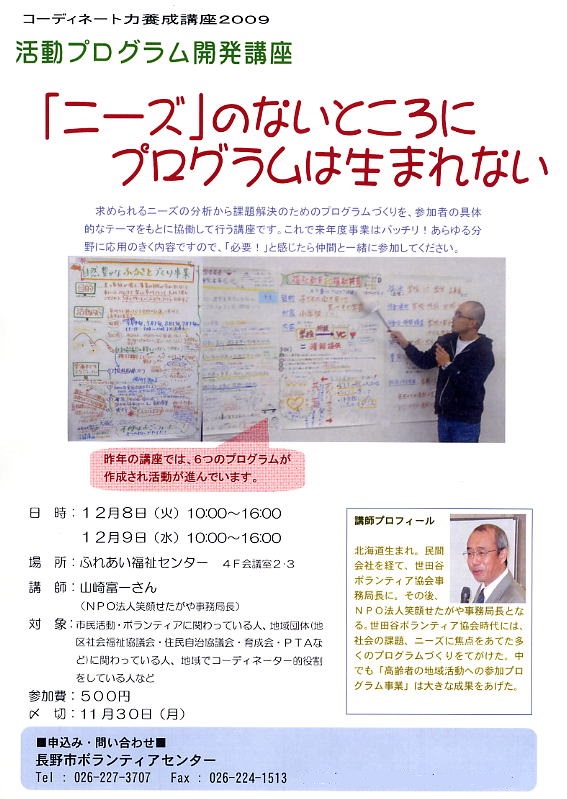 コーディネート力養成講座2009
活動プログラム開発講座
「ニーズ」のないところに
プログラムは生まれない
求められるニーズの分析から課題解決のためのプログラムづくりを、参加者の具体
的なテーマをもとに協働して行う講座です。これで来年度事業はバッチリ！あらゆる分
野に応用のきく内容ですので、「必要！」と感じたら仲間と一緒に参加してください。
自然豊かなふるさとづくり事業
目的
昨年の講座では、6つのプログラムが
作成され活動が進んでいます。
日　時：１２月８日（火）10:00～16:00
１２月９日（水）10:00～16:00
場　所：ふれあい福祉センター　４Ｆ会議室２・３
講　師：山崎富一さん
（ＮＰＯ法人笑顔せたがや事務局長）
対　象：市民活動・ボランティアに関わっている人、地域団体（地
区社会福祉協議会・住民自治協議会・育成会・ＰＴＡな
ど）に関わっている人、地域でコーディネーター的役割
をしている人など
参加費：５００円
〆　切：１１月３０日（月）
講師プロフィール
北海道生まれ。民間
会社を経て、世田谷
ボランティア協会事
務局長に。その後、
ＮＰＯ法人笑顔せたがや事務局長とな
る。世田谷ボランティア協会時代には、
社会の課題、ニーズに焦点をあてた多
くのプログラムづくりをてがけた。中
でも「高齢者の地域活動への参加プロ
グラム事業」は大きな成果をあげた。
■申込み・問い合わせ■
長野市ボランティアセンター
Tel : 026-227-3707　Fax : 026-224-1513